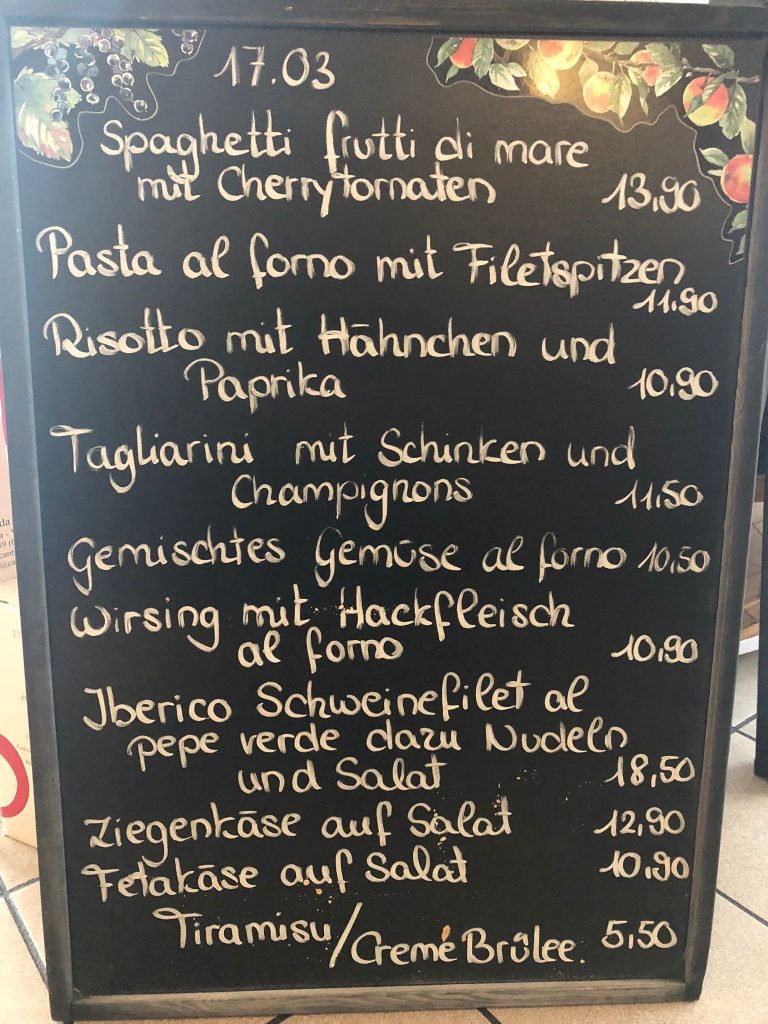 17.03
Spaghetti frutti di mare
mit Cherrytomaten 13,90
Pasta al forno mit Filetspitzen
11,90
Risotto mit Hähnchen und
Paprika 10,90
Tagliarini mit Schinken und
Champignons 11,50
Gemischtes Gemüse al forno 10,50
Wirsing mit Hackfleisch
al forno 10,90
Iberico Schweinefilet al
pepe verde dazu Nudeln
und Salat 18,50
Ziegenkäse auf Salat 12,90
Fetakäse auf Salat 10,90
Tiramisu/Cremé Brûlee. 5,50